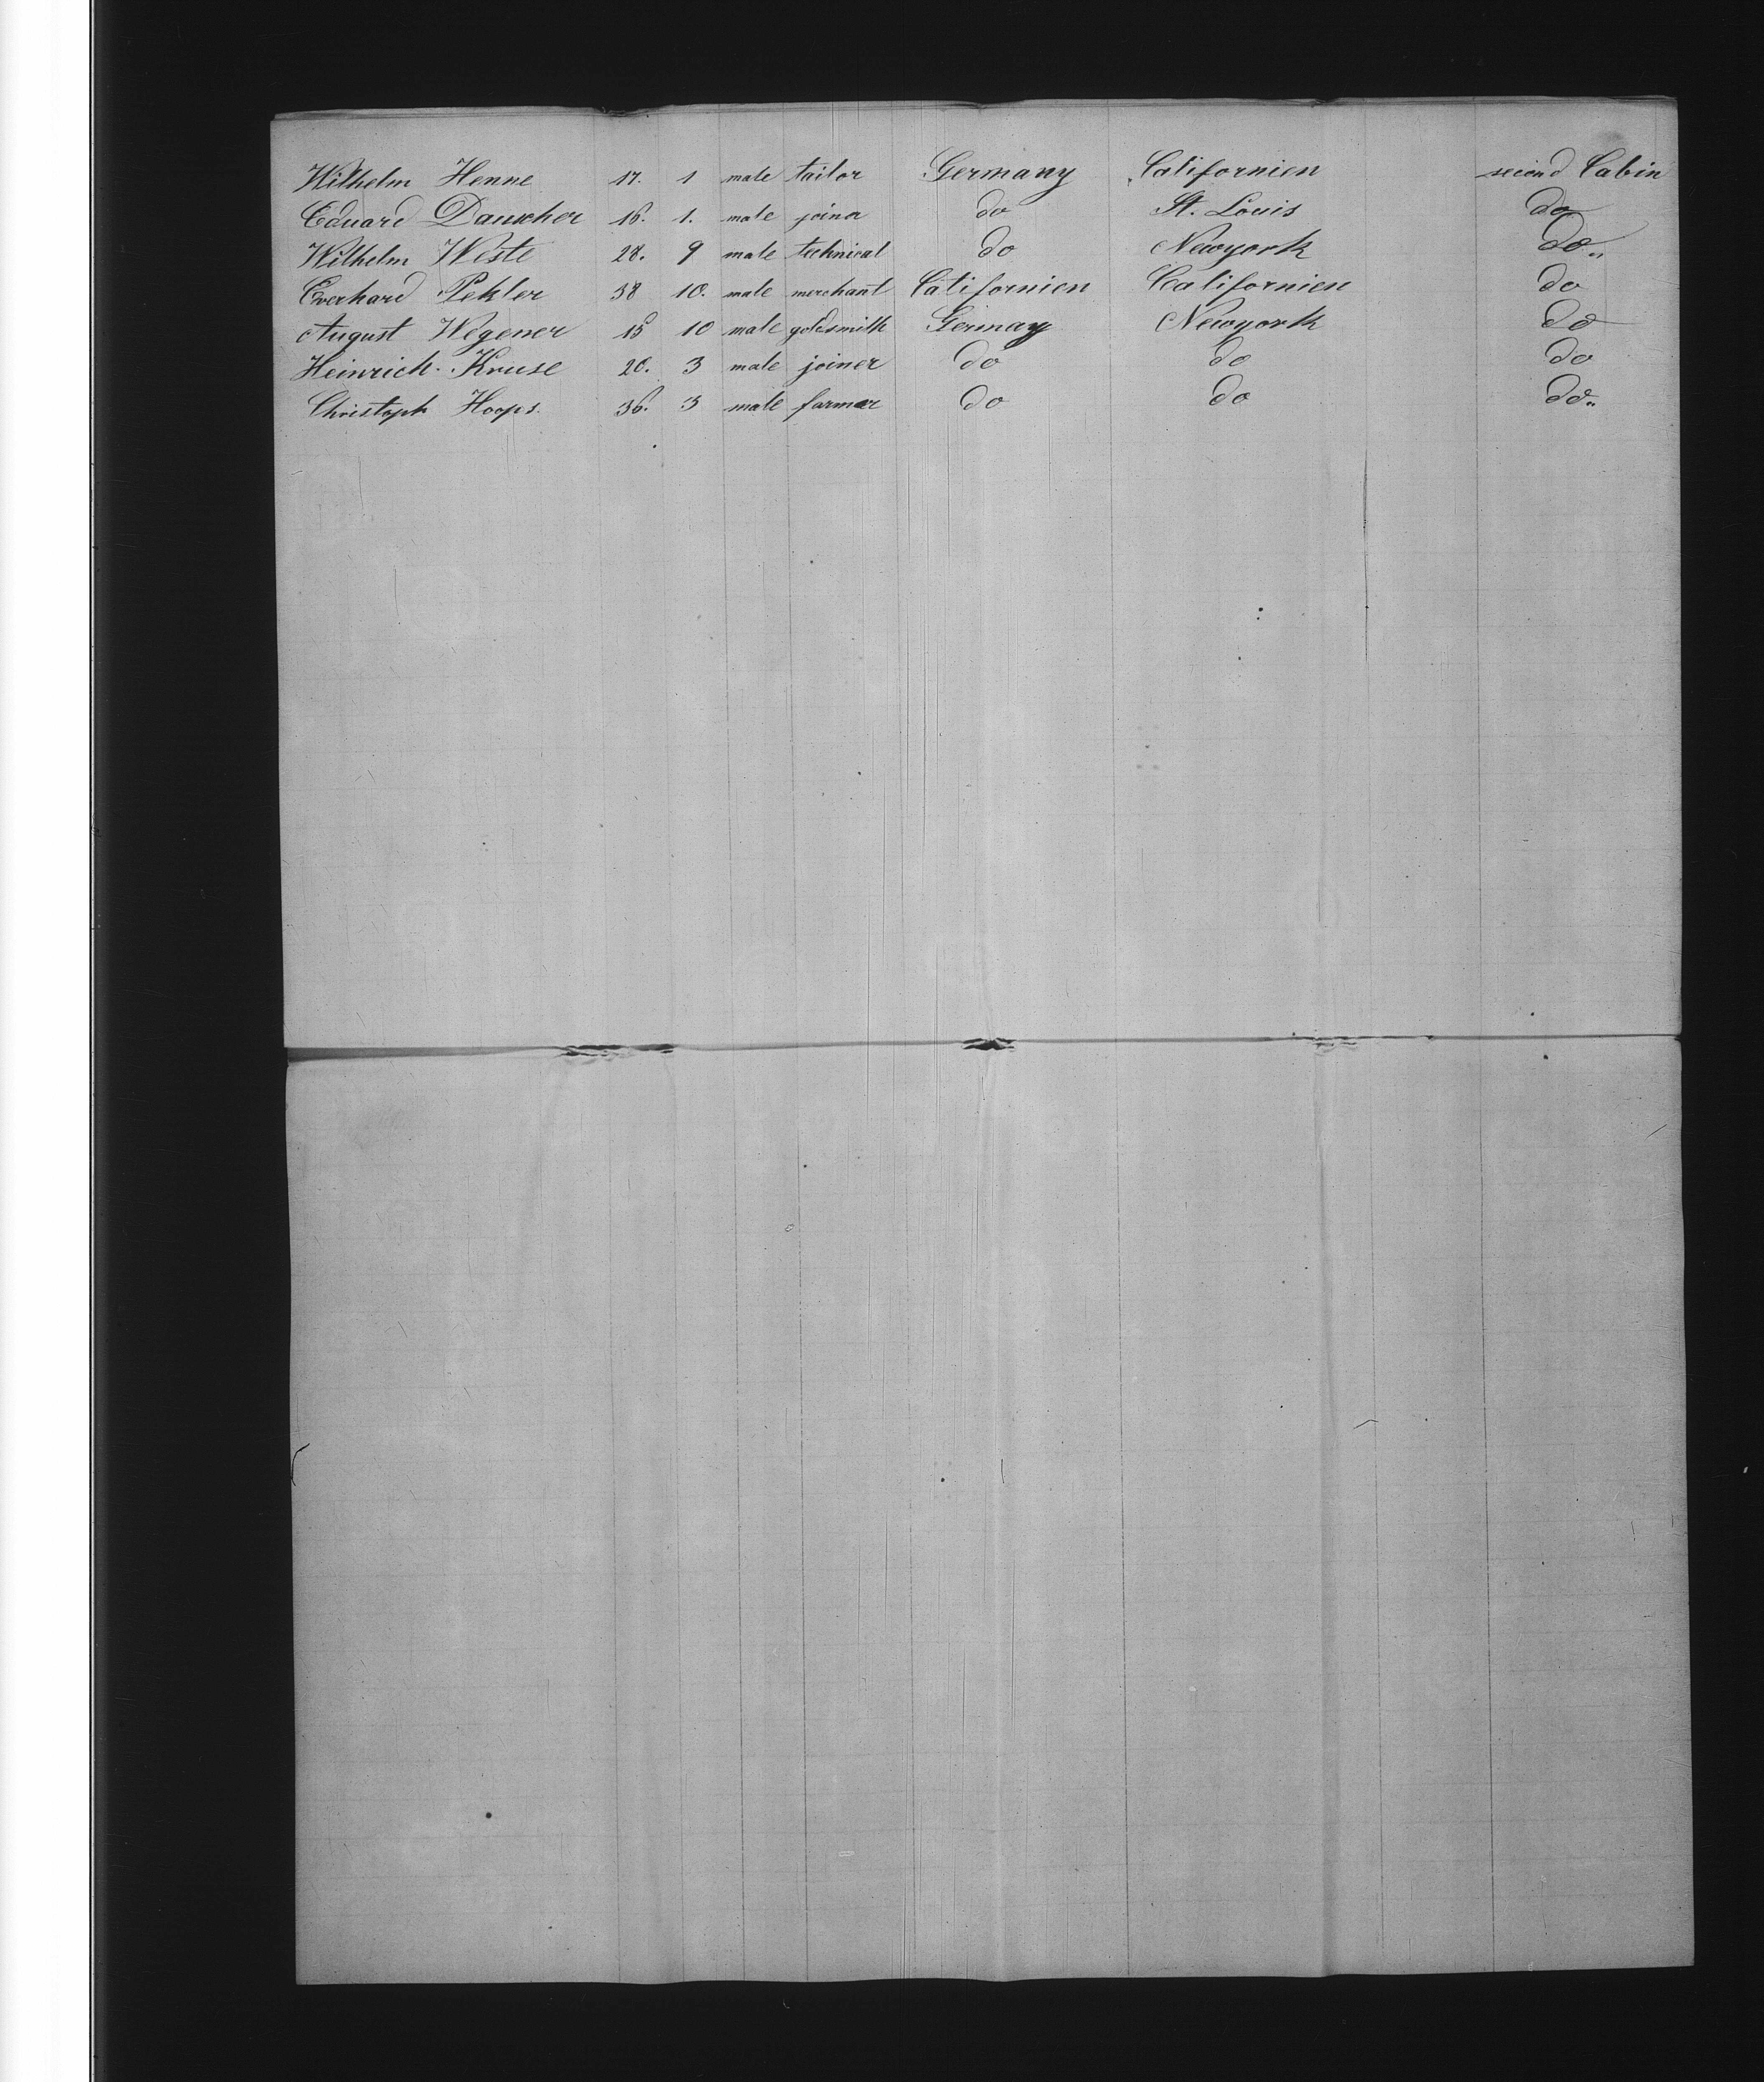 Wilhelm Henne 17. 1 male tailor Germany Californien second Cabin
Eduard Dauscher 16. 1. male joiner do St. Louis do
Wilhelm Weste 28. 9 male technical do Newyork do
Everhard Pekler 38 10. male merchant Californien Californien do
August Wegener 18 10 male goldsmith Germay Newyork do
Heinrich Kruse 20. 3 male joiner do do do
Christoph Hoops. 36. 3 male farmer do do do